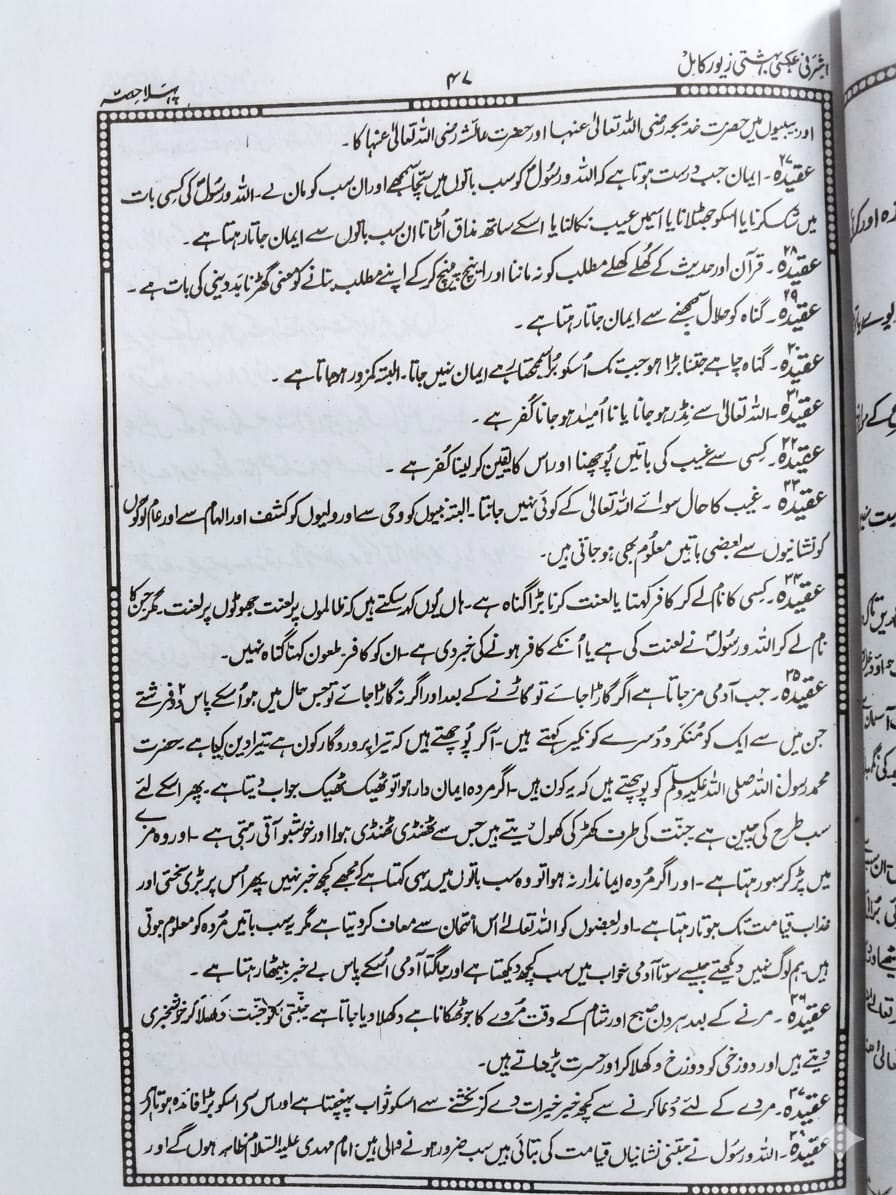 اشرفی عکسی بہشتی زیور کامل
۴۷
پہلا حصہ
اور بیبیوں میں حضرت خدیجہ رضی اللہ تعالیٰ عنہا اور حضرت عائشہ رضی اللہ تعالیٰ عنہا کا۔
عقیدہ ۲۷۔ ایمان جب درست ہوتا ہے کہ اللہ و رسولؐ کو سب باتوں میں سچا سمجھے اور ان سب کو مان لے۔ اللہ و رسولؐ کی کسی بات
میں شک کرنا یا اسکو جھٹلانا یا اسمیں عیب نکالنا یا اسکے ساتھ مذاق اڑانا ان سب باتوں سے ایمان جاتا رہتا ہے۔
عقیدہ ۲۸۔ قرآن اور حدیث کے کُھلے کھلے مطلب کو نہ ماننا اور اینچ پینچ کر کے اپنے مطلب بنانے کو معنی گھڑنا بد دینی کی بات ہے۔
عقیدہ ۲۹۔ گناہ کو حلال سمجھنے سے ایمان جاتا رہتا ہے۔
عقیدہ ۳۰۔ گناہ چاہے جتنا بڑا ہو جب تک اُسکو بُرا سمجھتا رہے ایمان نہیں جاتا۔ البتہ کمزور ہو جاتا ہے۔
عقیدہ ۳۱۔ اللہ تعالیٰ سے نڈر ہو جانا یا نا اُمید ہو جانا کُفر ہے۔
عقیدہ ۳۲۔ کسی سے غیب کی باتیں پُوچھنا اور اس کا یقین کر لینا کُفر ہے۔
عقیدہ ۳۳۔ غیب کا حال سوائے اللہ تعالیٰ کے کوئی نہیں جانتا۔ البتہ نبیوں کو وحی سے اور ولیوں کو کشف اور الہام سے اور عام لوگوں
کو نشانیوں سے بعضی باتیں معلُوم بھی ہو جاتی ہیں۔
عقیدہ ۳۴۔ کسی کا نام لے کر کافر کہنا یا لعنت کرنا بڑا گناہ ہے۔ ہاں یُوں کہہ سکتے ہیں کہ ظالموں پر لعنت جھوٹوں پر لعنت۔ مگر جن کا
نام لے کر اللہ و رسولؐ نے لعنت کی ہے یا اُنکے کافر ہونے کی خبر دی ہے۔ ان کو کافر ملعون کہنا گناہ نہیں۔
عقیدہ ۳۵۔ جب آدمی مر جاتا ہے اگر گاڑا جائے تو گاڑنے کے بعد اور اگر نہ گاڑا جائے تو جس حال میں ہو اُسکے پاس دو فرشتے
جن میں سے ایک کو مُنکَر و دُسرے کو نکیر کہتے ہیں۔ آکر پُوچھتے ہیں کہ تیرا پروردگار کون ہے تیرا دین کیا ہے حضرت
محمد رسول اللہ صلی اللہ علیہ وسلم کو پوچھتے ہیں کہ یہ کون ہیں۔ اگر مردہ ایمان دار ہو تو ٹھیک ٹھیک جواب دیتا ہے۔ پھر اسکے لئے
سب طرح کی چین ہے جنت کی طرف کھڑکی کھول دیتے ہیں جس سے ٹھنڈی ٹھنڈی ہوا اور خوشبو آتی رہتی ہے۔ اور وہ مزے
میں پڑ کر سو رہتا ہے۔ اور اگر مُردہ ایماندار نہ ہو تو وہ سب باتوں میں یہی کہتا ہے کہ مجھے کچھ خبر نہیں پھر اُس پر بڑی سختی اور
عذاب قیامت تک ہوتا رہتا ہے۔ اور بعضوں کو اللہ تعالےٰ اس امتحان سے معاف کر دیتا ہے مگر یہ سب باتیں مُردہ کو معلوم ہوتی
ہیں۔ ہم لوگ نہیں دیکھتے جیسے سوتا آدمی خواب میں سب کچھ دیکھتا ہے اور جاگتا آدمی اُسکے پاس بے خبر بیٹھا رہتا ہے۔
عقیدہ ۳۶۔ مرنے کے بعد ہر دن صبح اور شام کے وقت مُردے کا جو ٹھکانا ہے دکھلا دیا جاتا ہے جنتی کو جنت دکھلا کر خوشخبری
دیتے ہیں اور دوزخی کو دوزخ دکھلا کر اور حسرت بڑھاتے ہیں۔
عقیدہ ۳۷۔ مردے کے لئے دُعا کرنے سے کچھ خیر خیرات دے کر بخشنے سے اسکو ثواب پہنچتا ہے اور اس سے اسکو بڑا فائدہ ہوتا ہے
عقیدہ ۔ اللہ و رسول نے جتنی نشانیاں قیامت کی بتائی ہیں سب ضرور ہونے والی ہیں امام مہدی علیہ السلام ظاہر ہوں گے اور